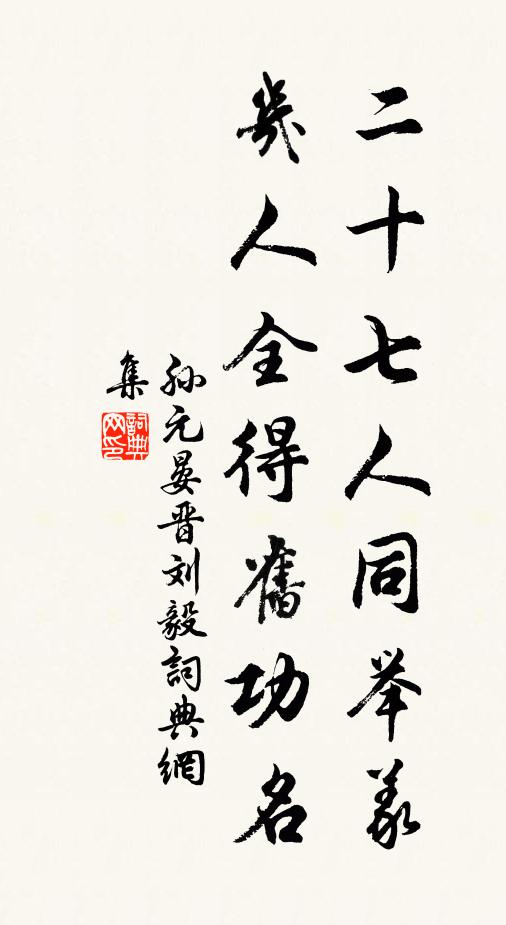 二十七人同举義
幾人全得舊功名
孙元晏晋刘毅詞典網
集
詞典網印